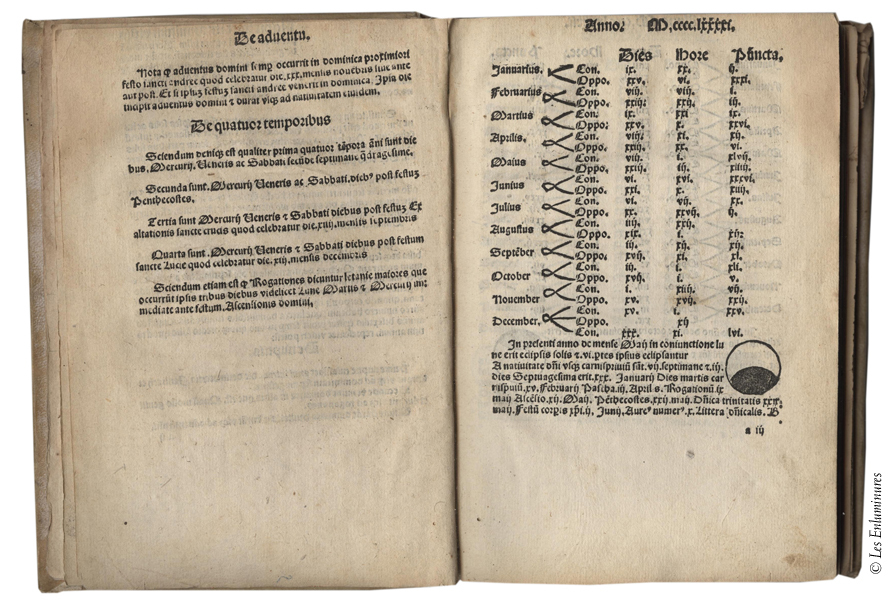 De aduentu.
Nota ꝙ aduentus domini semꝑ occurrit in dominica proximiori
festo sancti andree quod celebratur die .xxx. mensis nouēbris siue ante
aut post. Et si ipsuꝫ festuꝫ sancti andree venerit in dominica. Ipsa die
incipit aduentus domini ⁊ durat vsqꝫ ad natiuitatem eiusdem.
De quatuor temporibus
Sciendum deniqꝫ est qualiter prima quatuor tēpora āni sunt die
bus. Mercurij. Ueneris ac Sabbati secūde septimane q̄dragesime.
Secunda sunt. Mercurij Ueneris ac Sabbati. diebꝰ post festuꝫ
Penthecostes.
Tertia sunt Mercurij Ueneris ⁊ Sabbati diebus post festuꝫ Ex
altationis sancte crucis quod celebratur die .xiiij. mensis septembris
Quarta sunt. Mercurij Ueneris ⁊ Sabbati diebus post festum
sancte Lucie quod celebratur die .xiij. mensis decembris
Sciendum etiam est ꝙ Rogationes dicuntur letanie maiores que
occurrūt ipsis tribus diebus videlicet Lune Martis ⁊ Mercurij im
mediate ante festum. Ascensionis domini.
Anno: M.cccc.lxxxxi.
Dies Hore Pūcta.
Januarius. Con. ix. xx. ij.
Oppo. xxv. vi. xxxi.
Februarius Con. viij. viij. i.
Oppo. xxiij: xxij. iij.
Martius Con. ix. xxi ix.
Oppo: xxv. x. xxvi.
Aprilis. Con. viij. xi. xij.
Oppo. xxiij. xx. vi.
Maius Con. viij. i. xlvij.
Oppo. xxiij. iij. xiij.
Junius Con. vi. xvi. xxxvi.
Oppo. xxi. x. xiiij.
Julius Con. vi. vij. xx.
Oppo. xx. xxvij. ij.
Augustus Con. iiij.
Oppo. xix. i. xij:
Septēber Con. iij. xij. xij.
Oppo. xvij. xi. xi.
October Con. iij. i. xli.
Oppo. xvij. i. v.
November Con. i. xiiij. vij.
Oppo. xv. xvij. xxij.
December. Con. xv. i. xxv.
Oppo. xij
Con. xxx. xi. lvi.
In presenti anno de mense Maij in coniunctione lu
ne erit eclipsis solis ⁊ .vi. ꝑtes ipsius eclipsantur
A natiuitate dn̄i vsqꝫ carnispriuiū sūt .vij. septimane ⁊ .iij.
dies Septuagesima erit .xxx. Januarij Dies martis car
nispuiū .xv. Februarij Pascha .iij. April s. Rogationū ix
maij Ascēsio .xij. Maij. Pēthecostes .xxij. maij. Dn̄ica trinitatis xxix
maij. Festū corꝑis xp̄i .ij. Junij. Aureꝰ numerꝰ .x. Littera dn̄icalis. B
a iij
© Les Enluminures